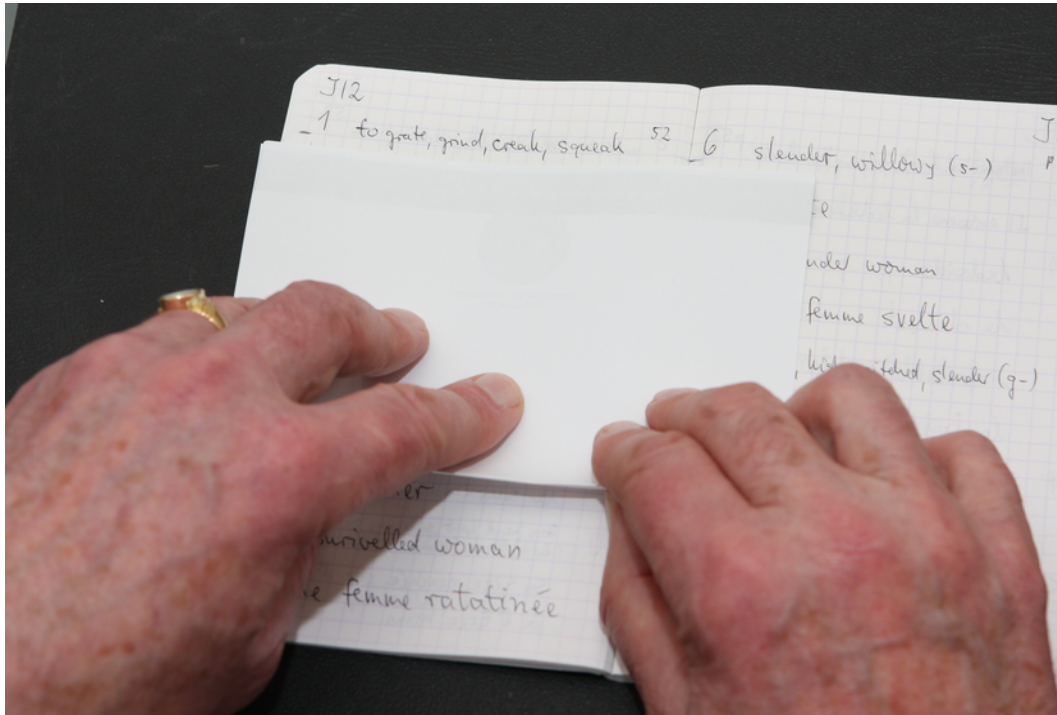 J12
1 to grate, grind, creak, squeak 52
woman
femme ratatinée
6 slender, willowy (s-)
woman
femme svelte
slender (g-)